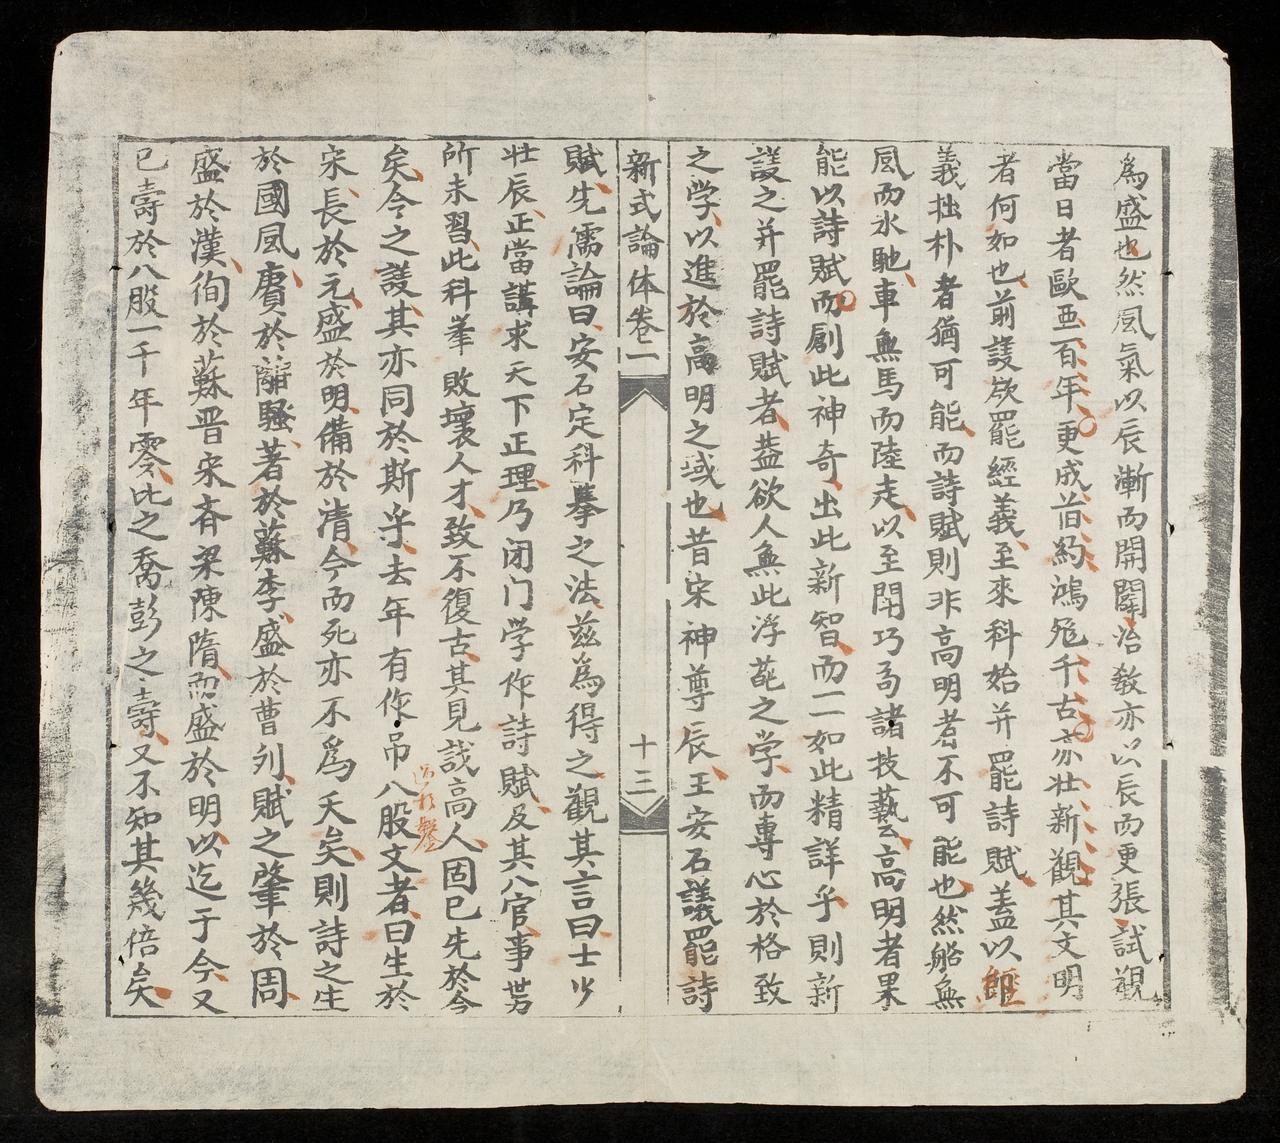 為盛也然風氣以辰漸而開闢治敎亦以辰而更張試觀
當日者歐亞百年更成首約鴻兜千古亦壯新觀其文明
者何如也前議欲罷經義至來科始并罷詩賦蓋以經
義拙朴者猶可能而詩賦則非高明者不可能也然船無
風而水馳車無馬而陸走以至閉巧奇諸技藝高明者果
能以詩賦而創此神奇出此新智而一一如此精詳乎則新
議之并罷詩賦者益欲人無此浮花之学而專心於格致
之学以進於高明之域也昔宋神尊辰王安石議罷詩
新式論体卷一
十三
賦先儒論曰安石定科舉之法茲為得之觀其言曰士少
壮辰正當講求天下正理乃闭门学作詩賦及其入官事世务
所未習此科峯敗壞人才致不復古其見哉高人固已先於今
矣今之議其亦同於斯乎去年有作吊八股文者曰生於
宋長於元盛於明備於清今而死亦不爲夭矣則詩之生
於國風賡於離騷著於蘇李盛於曹刘賦之肇於周
盛於漢徇於蘇晋宋斉梁陳隋而盛於明以迄于今又
已壽於八股一千年零比之喬彭之壽又不知其幾倍矣